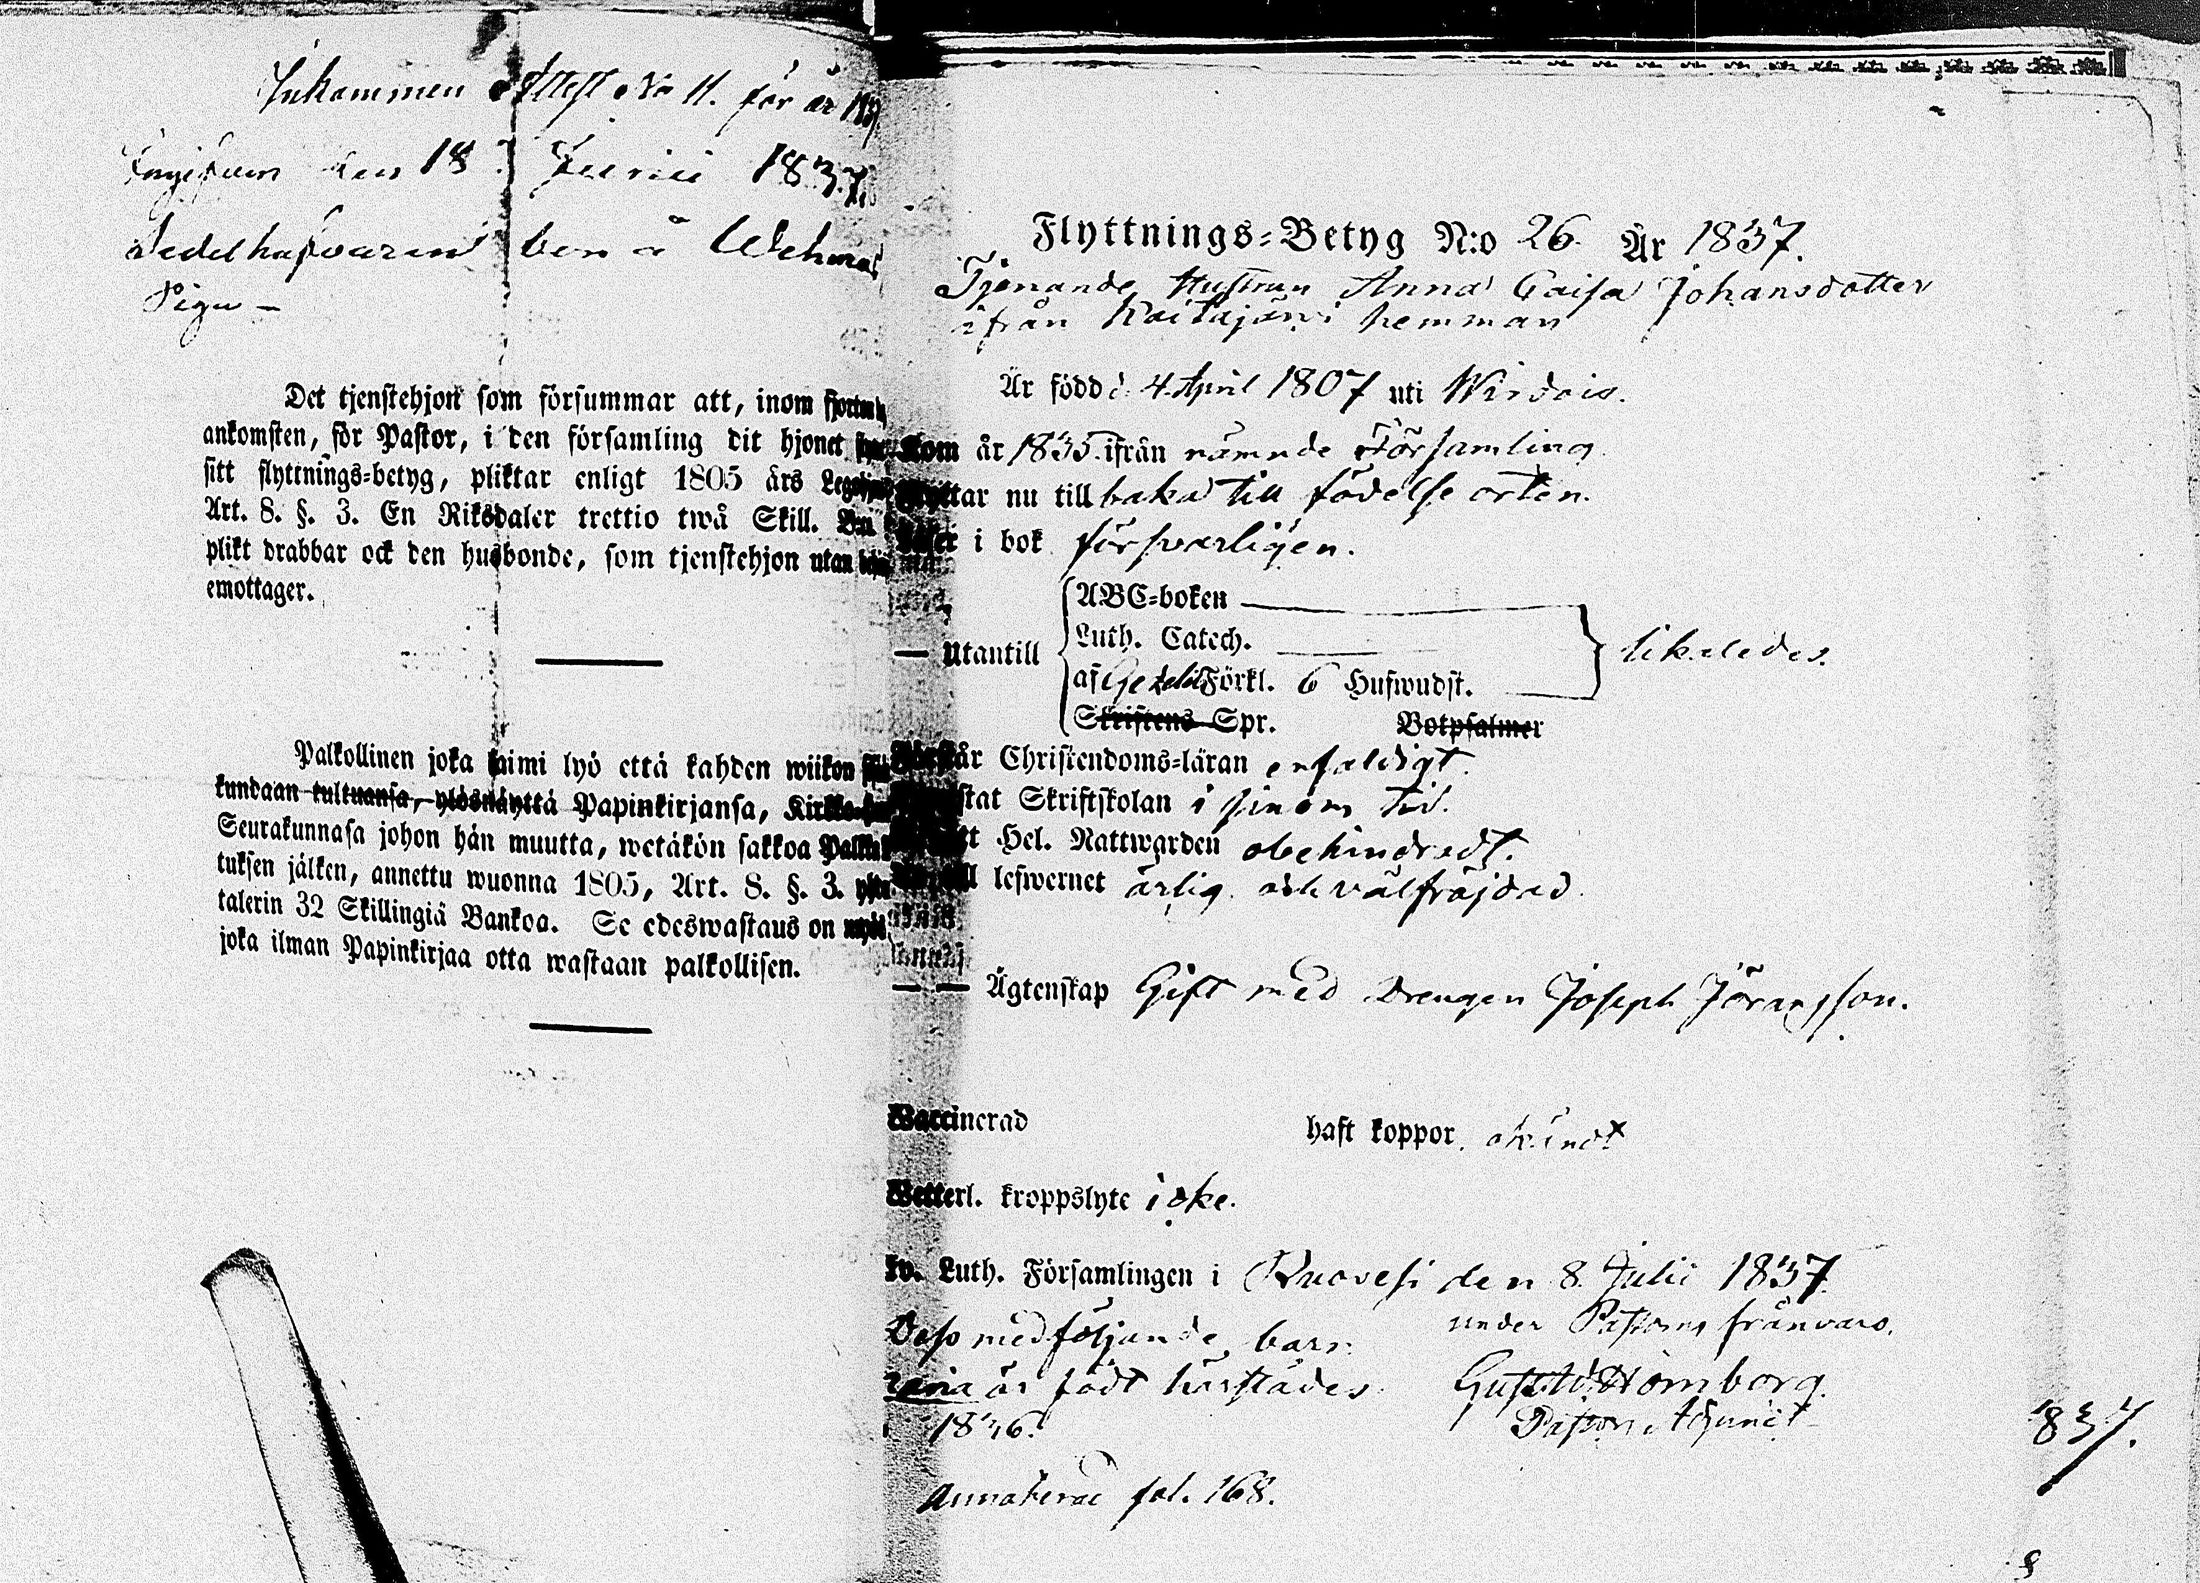 Inkommen Attest No 11. för år
den 18 Junii 1837.
Sedelhafvaren bor å
Piga –
Det tjenstehjon som försummar att, inom fjorton
ankomsten, för Pastor, i den församling dit hjonet
sitt flyttnings=betyg, pliktar enligt 1805 års
Art. 8. §. 3. En Riksdaler trettio twå Skill.
plikt drabbar ock den husbonde, som tjenstehjon utan
emottager.
Palkollinen joka laimi lyö että kahden wiikon
kundaan tultuansa, ylösnäyttä Papinkirjansa,
Seurakunnasa johon hän muutta, wetäkön sakkoa
tuksen jälken, annettu wuonna 1805, Art. 8. §. 3.
talerin 32 Skillingiä Bankoa. Se edeswastaus on
joka ilman Papinkirjaa otta wastaan palkollisen.
Flyttnings=Betyg N:o 26. År 1837.
Tjenande Hustrun Anna Caisa Johansdotter
ifrån Kaitajärvi hemman
Är född d. 4 April 1807 uti Wirdois.
Kom år 1835 ifrån nämnde Församling.
Flyttar nu till baka till födelse orten.
Läser i bok försvarligen.
— Utantill
ABC=boken
Luth. Catech.
af Gezelii Förkl. 6 Hufwudst.
Skriftens Spr. Botpsalmer
likaledes.
Förstår Christendoms=läran enfaldigt.
Skriftskolan i sinom tid.
Hel. Nattwarden obehindradt.
lefwernet ärlig och välfräjdad.
— — Ägtenskap Gift med Drengen Joseph Jöransson.
Waccinerad haft koppor. okändt
Wetterl. kroppslyte icke.
Ev. Luth. Församlingen i Ruovesi den 8. Julii 1837.
Dess medföljande barn
är född härstädes
1836.
under Pastorns frånvaro.
Homborg.
Pastors Adjunct
Annoterad fol. 168.
837.
8